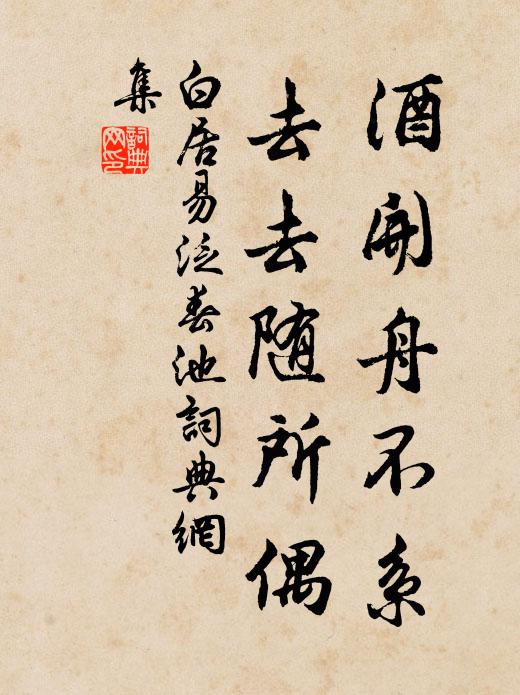 酒開舟不系
去去随所偶
白居易泛春池詞典網
集
詞典
网印